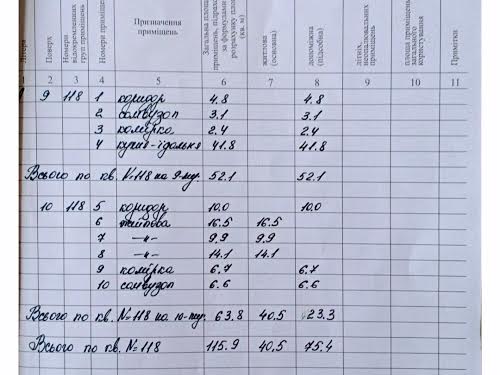 Літера
Поверх
Номери відокремлених груп приміщень
Номери приміщень
Призначення приміщень
Загальна площа приміщень, підрахована за формулами розрахунку площ (кв. м)
житлова (основна)
допоміжна (підсобна)
літніх, неопалювальних приміщень
площа приміщень загального користування
Примітки
1 2 3 4 5 6 7 8 9 10 11
9 118 1 коридор 4.8 4.8
2 санвузол 3.1 3.1
3 комірка 2.4 2.4
4 кухня-їдальня 41.8 41.8
Всього по кв. №118 на 9-му. 52.1 52.1
10 118 5 коридор 10.0 10.0
6 житлова 16.5 16.5
7 —"— 9.9 9.9
8 —"— 14.1 14.1
9 комірка 6.7 6.7
10 санвузол 6.6 6.6
Всього по кв. №118 на 10-му. 63.8 40.5 23.3
Всього по кв. №118 115.9 40.5 75.4